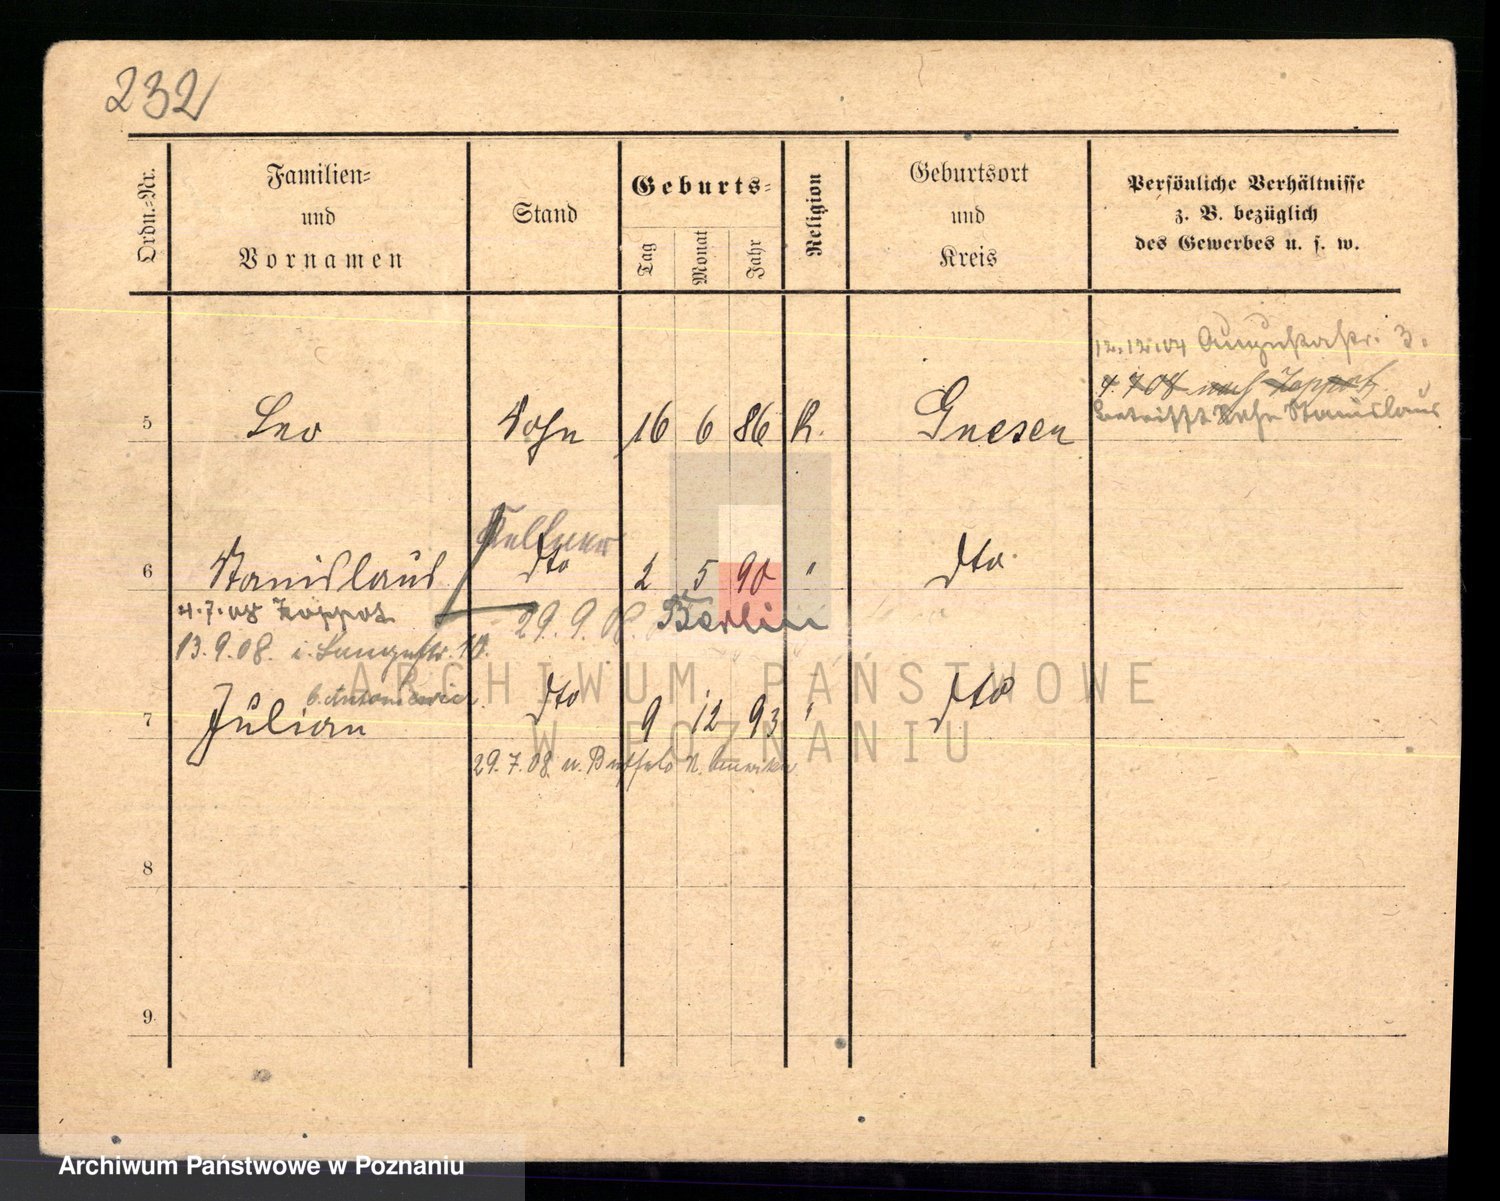 232
Ordn.-Nr.
Familien-
und
Vornamen
Stand
Geburts-
Tag
Monat
Jahr
Religion
Geburtsort
und
Kreis
Persönliche Verhältnisse
z. B. bezüglich
des Gewerbes u. s. w.
12.12.04 Augustastr. 3.
4.7.08 nach Zoppot
betrifft Sohn Stanislaus
5 Leo Sohn 16 6 86 K. Gnesen
Kellner
6 Stanislaus dto 2 5 90 " dto
4.7.08 Zoppot 29.9.08. Berlin
13.9.08. 10.
b. Antoniewicz.
7 Julian dto 9 12 93 " dto
29.7.08. n. Buffalo N. Amerika
8
9
ARCHIWUM PAŃSTWOWE
W POZNANIU
Archiwum Państwowe w Poznaniu